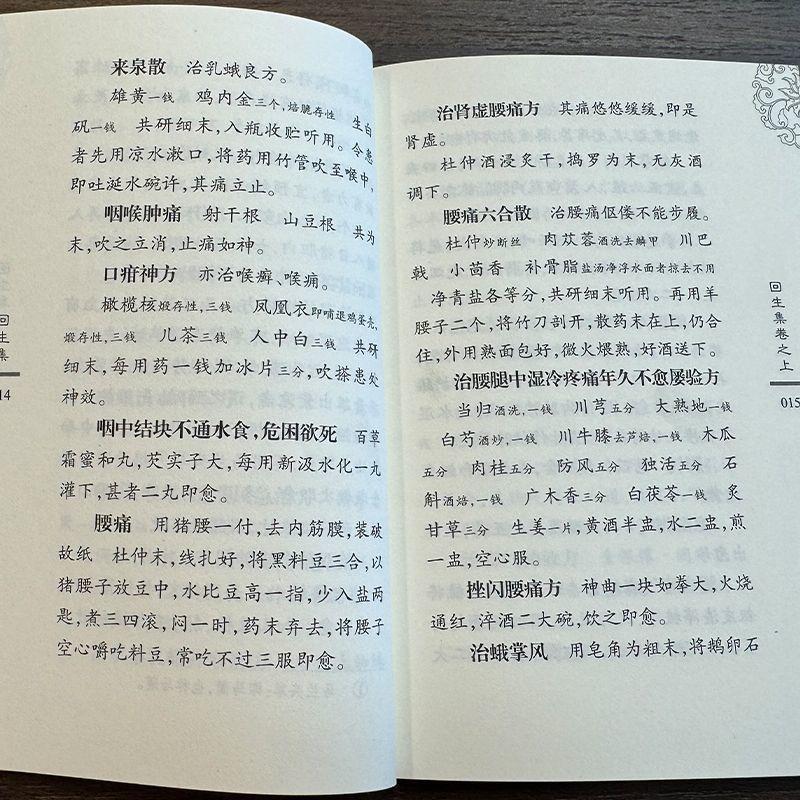 来泉散 治乳蛾良方。
雄黄一钱 鸡内金三个，焙脆存性 生白
矾一钱 共研细末，入瓶收贮听用。令患
者先用凉水漱口，将药用竹管吹至喉中，
即吐涎水碗许，其痛立止。
咽喉肿痛 射干根 山豆根 共为
末，吹之立消，止痛如神。
口疳神方 亦治喉癣、喉痈。
橄榄核煅存性，三钱 凤凰衣即哺退鸡蛋壳，
煅存性，三钱 儿茶三钱 人中白三钱 共研
细末，每用药一钱加冰片三分，吹搽患处
神效。
咽中结块不通水食，危困欲死 百草
霜蜜和丸，芡实子大，每用新汲水化一丸
灌下，甚者二丸即愈。
腰痛 用猪腰一付，去内筋膜，装破
故纸 杜仲末，线扎好，将黑料豆三合，以
猪腰子放豆中，水比豆高一指，少入盐两
匙，煮三四滚，闷一时，药末弃去，将腰子
空心嚼吃料豆，常吃不过三服即愈。
回生集
14
治肾虚腰痛方 其痛悠悠缓缓，即是
肾虚。
杜仲酒浸炙干，捣罗为末，无灰酒
调下。
腰痛六合散 治腰痛伛偻不能步履。
杜仲炒断丝 肉苁蓉酒洗去鳞甲 川巴
戟 小茴香 补骨脂盐汤净浮水面者掠去不用
净青盐各等分，共研细末听用。再用羊
腰子二个，将竹刀剖开，散药末在上，仍合
住，外用熟面包好，微火煨熟，好酒送下。
治腰腿中湿冷疼痛年久不愈屡验方
当归酒洗，一钱 川芎五分 大熟地一钱
白芍酒炒，一钱 川牛膝去芦焙，一钱 木瓜
五分 肉桂五分 防风五分 独活五分 石
斛酒焙，一钱 广木香三分 白茯苓一钱 炙
甘草三分 生姜一片，黄酒半盅，水二盅，煎
一盅，空心服。
挫闪腰痛方 神曲一块如拳大，火烧
通红，淬酒二大碗，饮之即愈。
治蛾掌风 用皂角为粗末，将鹅卵石
回生集卷之上
015